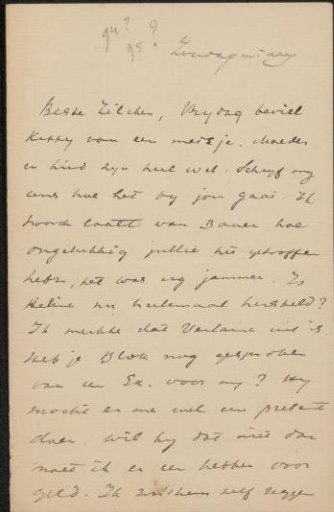 94?
95?
Zondagmiddag
Beste Zilcken, Vrijdag beviel
Kitty van een meisje. Moeder
en kind zijn heel wel. Schrijf mij
eens hoe het bij jou gaat. Ik
hoorde laatst van Bauer hoe
ongelukkig jullie het getroffen
hebt, het was erg jammer. Is
nu heelemaal hersteld?
Ik merkte dat Verlaine uit is.
Heb je Blok nog gesproken
van een Ex. voor mij? Hij
mocht er me wel een present
doen. Wil hij dat niet dan
moet ik er een hebben voor
geld. Ik zelf zeggen